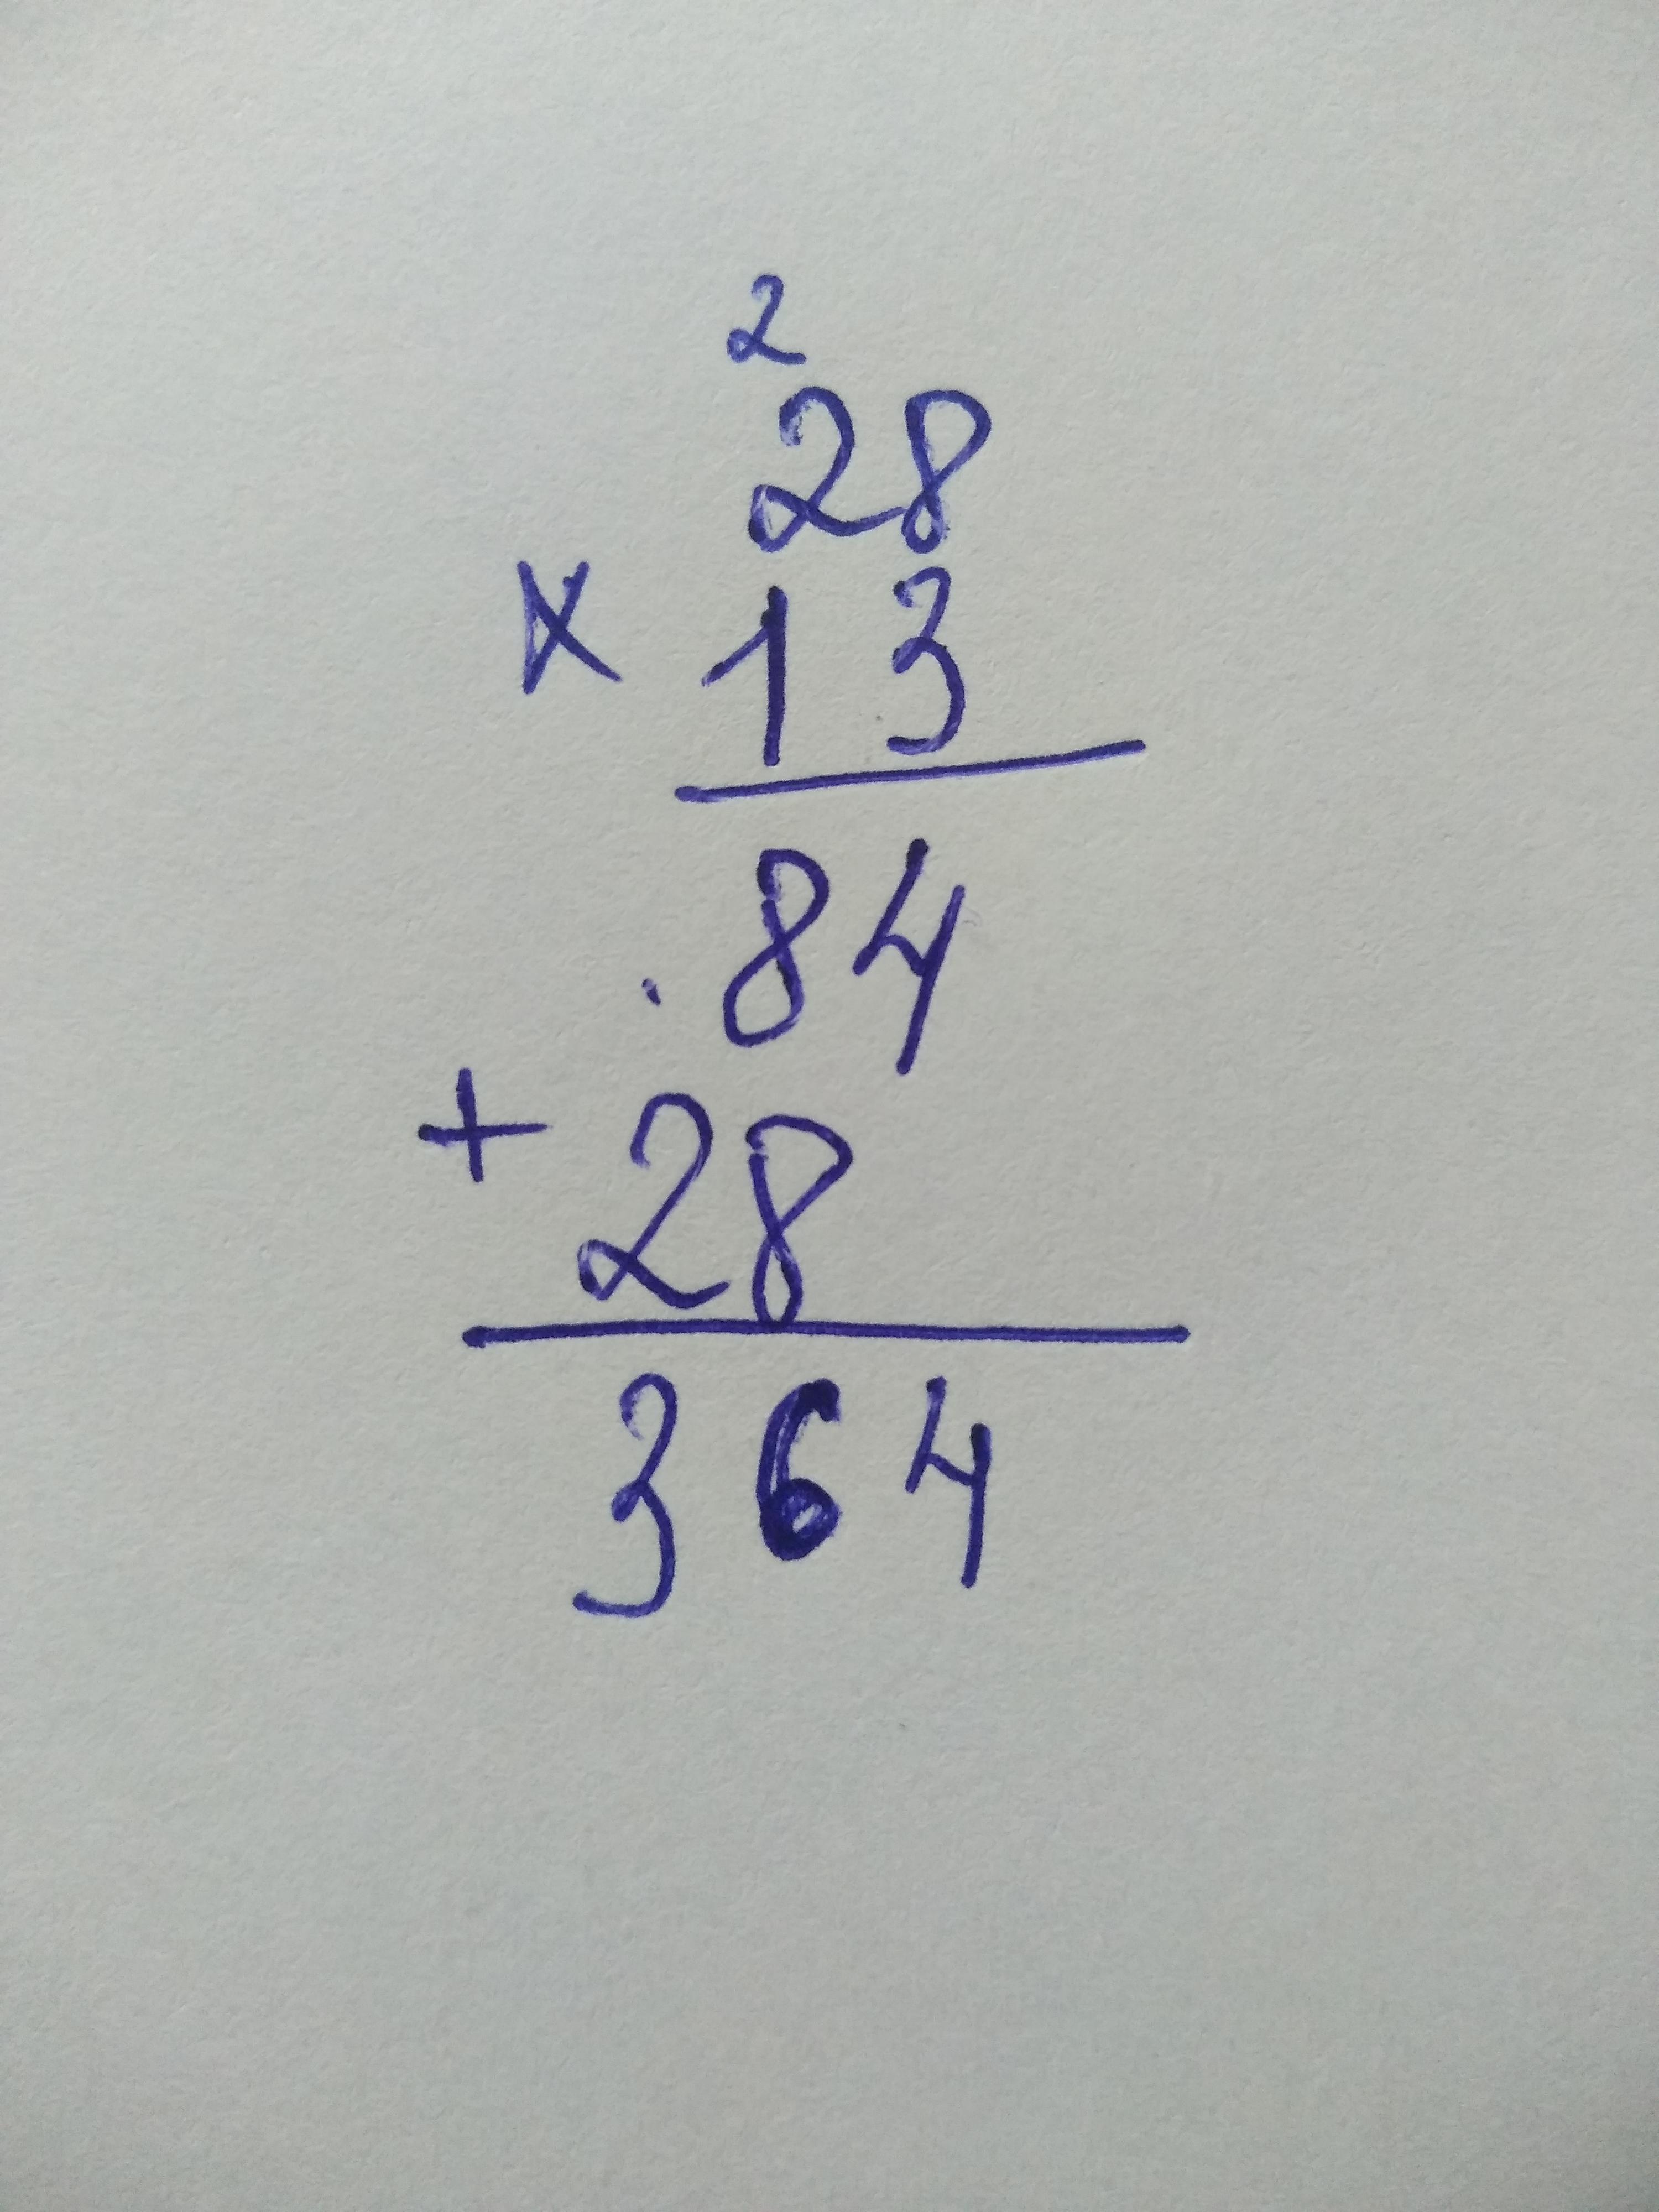 2
28
× 13
84
+ 28
364